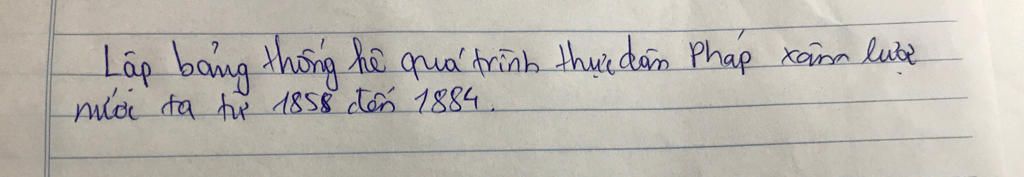 Lập bảng thống kê quá trình thực dân Pháp xâm lược
nước ta từ 1858 đến 1884.